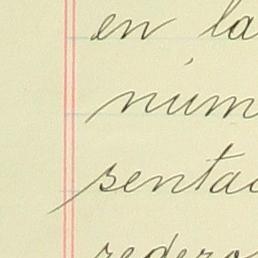 en la
núm
senta
redero